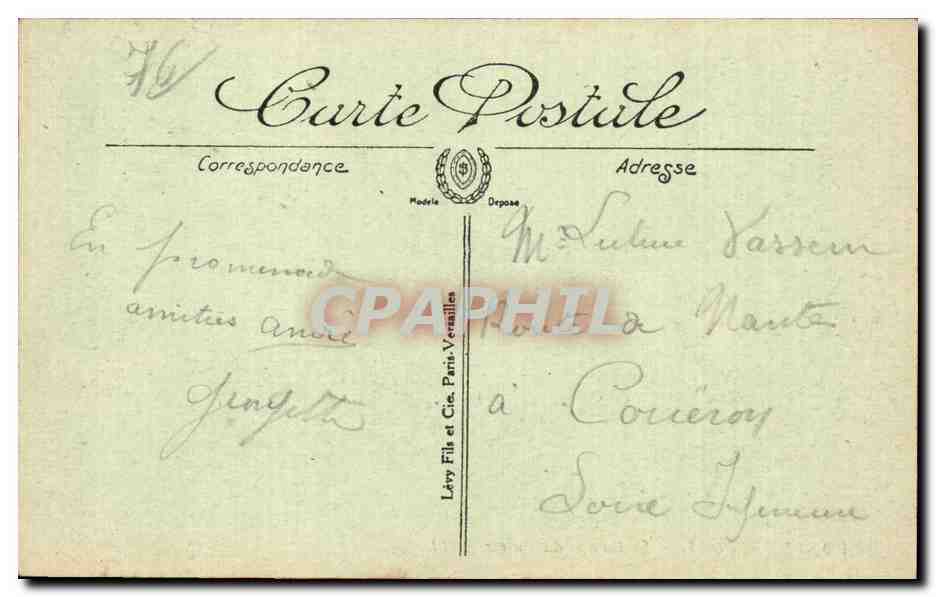 76
Carte Postale
Correspondance
Adresse
Modele Depose
En promenade
amitiés André
Georgette
Lévy Fils et Cie. Paris-Versailles
CPAPHIL
Mr
Route de Nantes
à Couëron
Loire Inférieure